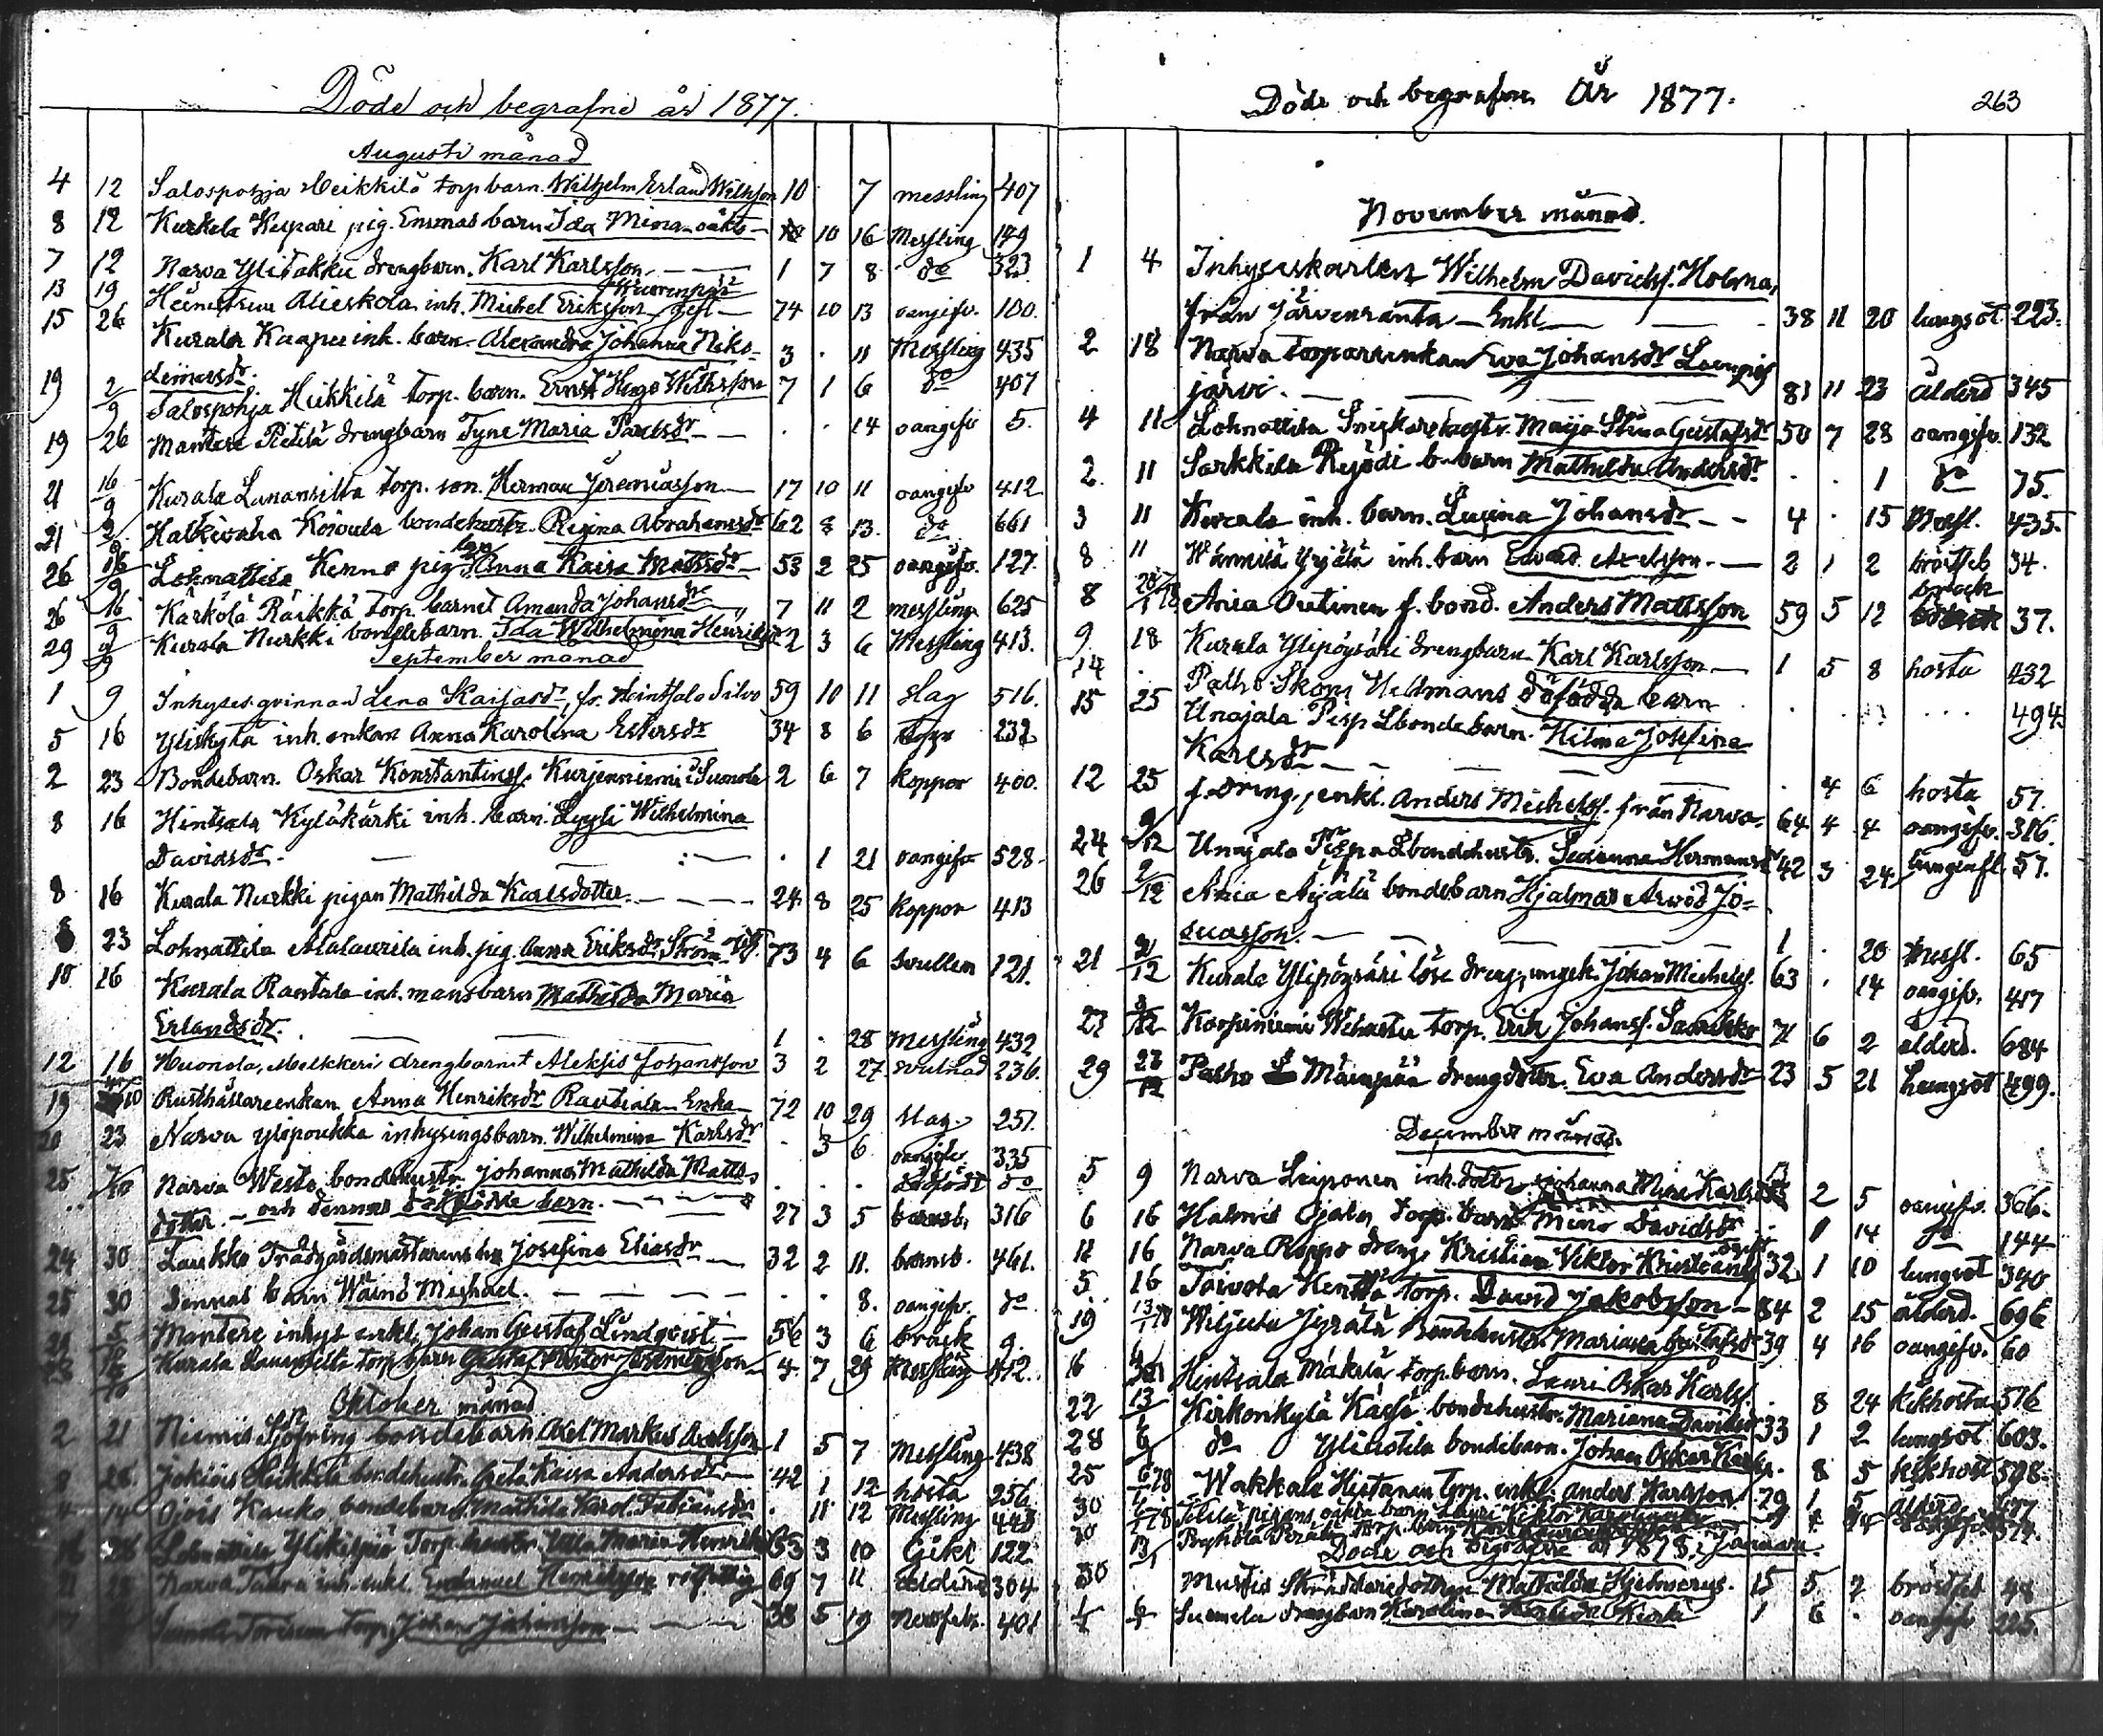 Döde och begrafne år 1877.
Augusti månad
4 12 Salospohja Heikkilä torp barn. Wilhelm Erland Wilhsson 10 7 messling 407
8 12 Kurkela Kespari pig. Ensmas barn Ida Mina oäkt 10 16 Messling 149
7 12 Narva Ylitakku drengbarn. Karl Karlsson 1 7 8 do 323
13 19 Alieskola inh. Michel Eriksson gift 74 10 13 oangifv. 100.
15 26 Kurala Kaapu inh. barn Alexandra Johanna Niko- 3 . 11 Messling 435
demusdr.
19 2/9 Salospohja Heikkilä torp. barn. Ernst Hugo Wilhsson 7 1 6 do 407
19 26 Mantere Pietilä drengbarn Tyne Maria Paulsdr . . 14 oangifv 5.
21 16/9 Kurala Lunansilta torp. son. Herman Jeremiasson 17 10 11 oangifv 412
21 2/9 Halkivaha Koivula bondehustr. Regina Abrahamsdr 62 8 13. do 661
26 16/9 Lohnattila Kenno pig Anna Kaisa Mattsdr 53 2 25 oangifv. 127.
26 16/9 Kärkölä Räikkä torp. barnet Amanda Johansdr 7 11 2 messling 625
29 9/9 Kurala Nurkki bondebarn. Ida Wilhelmina Henriksdr 2 3 6 Messling 413.
September månad
1 9 Inhyses qvinnan Lena Kaisasdr, fr. Hintsala Silvo 59 10 11 slag 516.
5 16 Yliskylä inh. enkan Anna Karolina Estersdr 34 8 6 232
2 23 Bondebarn. Oskar Konstantinss. Kurjenniemi i Sumola 2 6 7 koppor 400.
8 16 Hintsala Kyläkärki inh. barn. Lyyli Wilhelmina
Davidsdr. . 1 21 oangifv 528
8 16 Kurala Nurkki pigan Mathilda Karlsdotter. 24 8 25 koppor 413
8 23 Lohnattila Alalaurila inh. pig. Anna Eriksdr Ström 73 4 6 svullen 121.
10 16 Kurala Rantala inh. mans barn Mathilda Maria
Erlandsdr. 1 . 28 Messling 432
12 16 Huonola, Melkkeri drengbarnet Aleksis Johansson 3 2 27. svulnad 236.
19 Rusthållareenkan Anna Henriksdr Rautiala Enka 72 10 29 slag. 251.
20 23 Narva ylipoukka inhysingsbarn. Wilhelmina Karlsdr . 3 6 oangifv. 335
25 7/10 Narva Westo bondehustr. Johanna Mathilda Matts- . . . dödfödt do
dotter. och dennes dödfödde barn. 27 3 5 barnsb. 316
24 30 Laukko Trädgårdsmästarens hu Josefina Eliasdr 32 2 11. barnsb. 461.
25 30 dennes barn Wäinö Michael. . . 8. oangifv. do
Mantere inhys enkl. Johan Gustaf Lindqvist. 56 3 6 bråck 9
Kurala torp barn Gustaf Viktor Jeremiasson 4 7 29 Messling 412.
Oktober månad
2 21 Niemis Sjöfring bondebarn Axel Markus Axelsson 1 5 7 Messling 438
8 28 Jokiois Heikkilä bondehustr. Greta Kaisa Andersdr 42 1 12 hosta 256
4 14 Ojois Kauko bondebarn Mathilda Karol. Fabiansdr . 11 12 Messling 443
Lohnattila Ylikispiä Torp. hustr. Ulla Maria Henriksdr 63 3 10 Gikt 122
Narva Taura inh. enkl. Emanuel Henriksson 69 7 11 ålderd 304
Sumola Torp. Johan Johansson 38 5 19 Nervfeb. 401
Döde och begrafne År 1877. 263
November månad.
1 4 Inhyseskarlen Wilhelm Davidss. Holma,
från Järvenranta Enkl 38 11 20 lungsot 223.
2 18 Narva torpareenkan Eva Johansdr Lempis
järvi. 81 11 23 ålderd 345
4 11 Lohnattila Snickarehustr. Maija Stina Gustafsdr 50 7 28 oangifv. 132
2. 11 Sarkkila Rejodi b. barn Mathilda Andersdr . . 1 do 75.
3 11 Kurala inh. barn. Lusina Johansdr 4 . 15 Messl. 435.
8 11 Wännilä Yrjälä inh. barn Edvard Axelsson. 2 1 2 bröstfeb 34.
8 20/1 78 Ania Outinen f. bond. Anders Mattsson 59 5 12 bråck 37.
9. 18 Kurala Ylipöysäri drengbarn Karl Karlsson 1 5 8 hosta 432
14 . Palho Skom. Heldmans dödfödda barn . . . . . . 494
15 25 Unajala Pispa Lbondebarn. Hilma Josefina
Karlsdr . 4 6 hosta 57.
12 25 f. dreng, enkl. Anders Michelss. från Narva. 64 4 4 oangifv. 316.
24 9/12 Unajala Pispa Lbondehustr. Susanna Hermansdr 42 3 24 lunginfl. 57.
26 2/12 Ania Äijälä bondebarn Hjalmar Arvid Jo-
suasson. 1 . 20 Messl. 65
21 2/12 Kurala Ylipöysäri löse dreng, ungk. Johan Michelss. 63 . 14 oangifv. 417
27 9/12 Korpiniemi torp. Erik Johanss. 71 6 2 ålderd. 684
29 27/12 Palho Mäenpää drengdotter. Eva Andersdr 23 5 21 Lungsot 499.
December månad.
5 9 Narva Leiponen inh. dotter Johanna Mina Karlsdr 2 5 oangifv. 366.
6 16 Halmis Ojala torp. barn Mina Davidsdr . 1 14 do 144
11 16 Narva Roppo dreng. Kristian Viktor Kristians 32 1 10 lungsot 340
5. 16 Toivola Kenttä torp. David Jakobsson 84 2 15 ålderd. 696
19 13/1 78 Wiljula Jyrälä Bondehustr. Mariana Gustafsdr 39 4 16 oangifv. 60
16 Hintsala Mäkelä torp. barn. Lauri Oskar Karlss. . 8 24 kikhosta 516
22 13/1 Kirkonkylä Kässä bondehustr. Mariana Davidsdr 33 1 2 lungsot 603.
28 6/1 do Ylistilä bondebarn. Johan Oskar Karlss. . 8 5 kikhost 598
25 6/1 78 Wakkala Hietanen torp. enkl. Anders Karlsson 79 1 5 ålderd.
30 pigans oäkta barn Lauri Viktor
Döde och begrafne år 1878. i Januari.
30 Mustis Skräddaredottren Mathilda Hjelmerus. 15 5 2 bröstfeb 48
Sumela drengbarn Karolina 1 6 . oangifv 225.